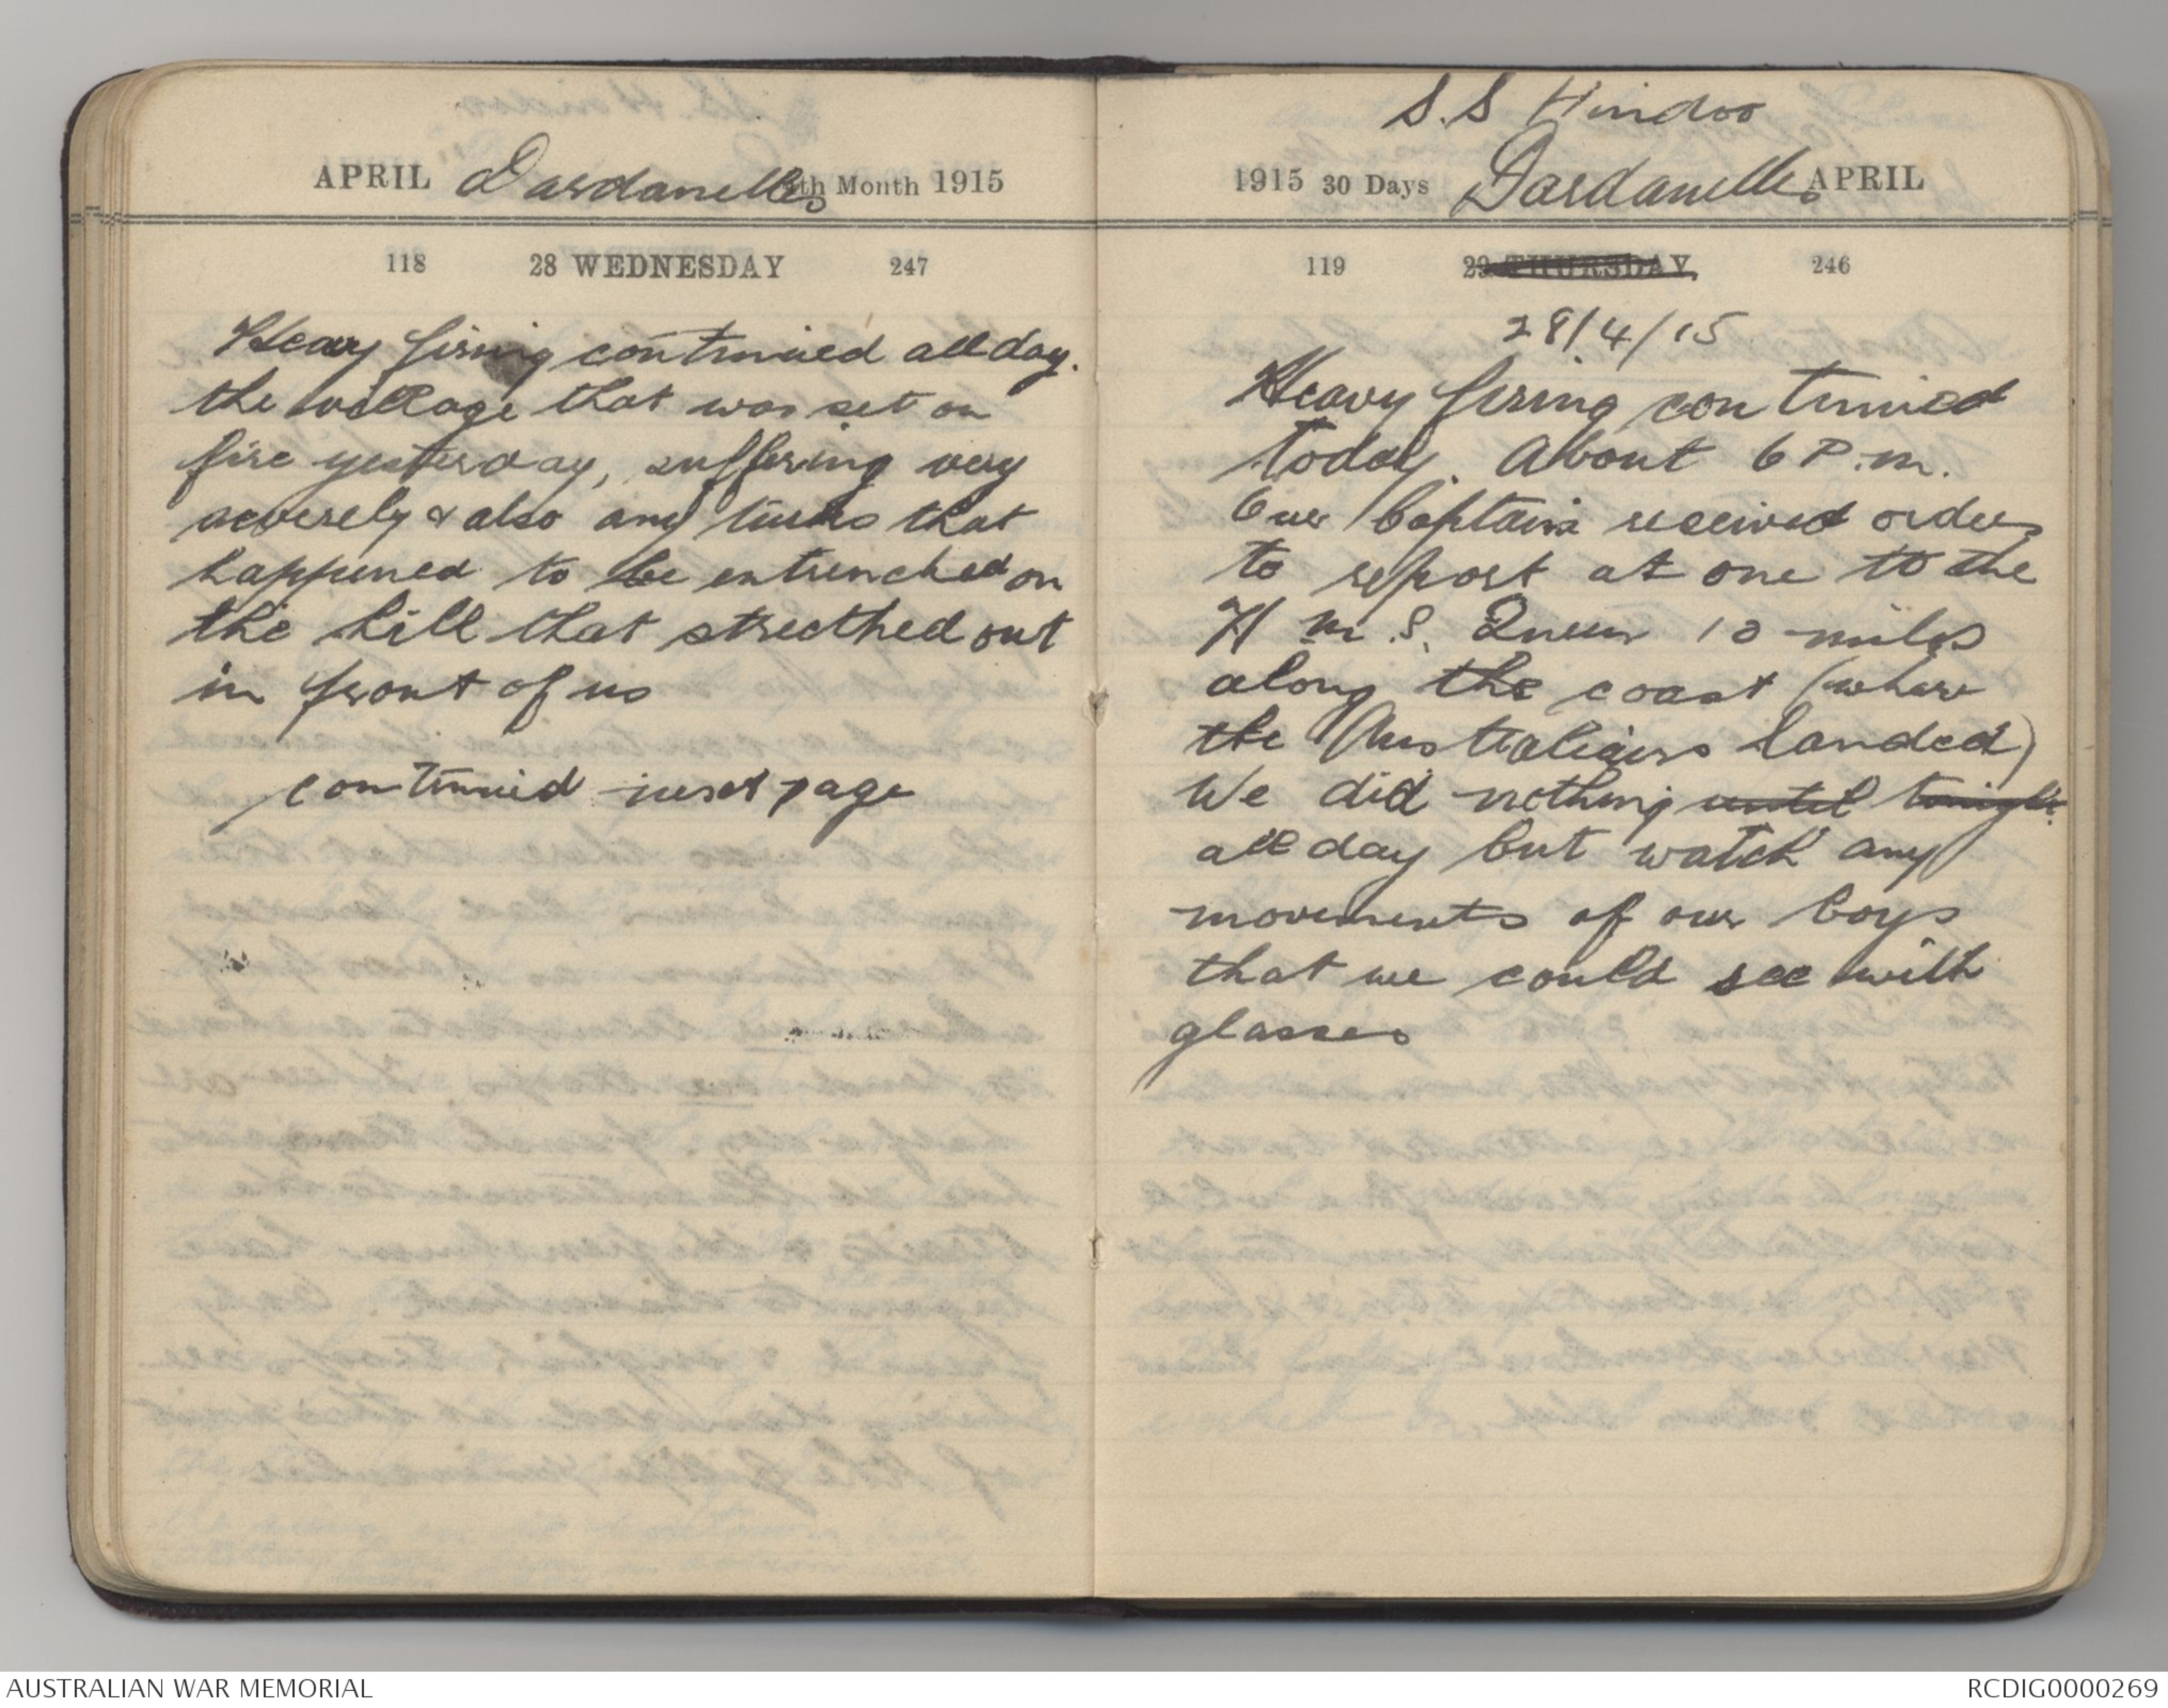 APRIL Dardanelles 4th Month 1915
118 28 WEDNESDAY 247
Heavy firing continued all day.
the village that was set on
fire yesterday, suffering very
severely & also any turks that
happened to be entrenched on
the hill that strecthed out
in front of us
continued next page
S.S Hindoo
1915 30 Days Dardanelles APRIL
119 29 THURSDAY 246
28/4/15
Heavy firing continued
today. About 6 P.m.
Our Captain received orders
to report at one to the
H m S. Queen 10 miles
along the coast (where
the Australians landed)
We did nothing until tonight
all day but watch any
movements of our boys
that we could see with
glasses
AUSTRALIAN WAR MEMORIAL
RCDIG0000269